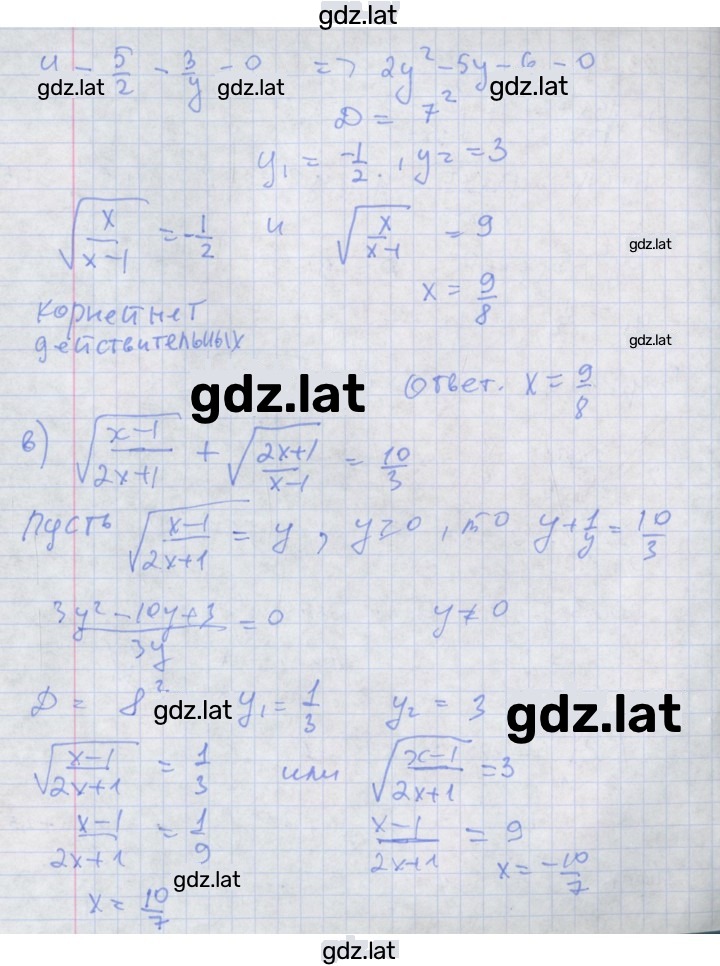 gdz.lat
и - 5/2 - 3/y - 0 => 2y² - 5y - 6 - 0
gdz.lat gdz.lat gdz.lat
D = 7²
y₁ = -1/2., y₂ = 3
√(x/(x-1)) = -1/2 и √(x/(x-1)) = 9
gdz.lat
x = 9/8
Корней нет
действительных
gdz.lat
gdz.lat
Ответ. x = 9/8
в) √((x-1)/(2x+1)) + √((2x+1)/(x-1)) = 10/3
Пусть √((x-1)/(2x+1)) = y, y≥0, то y + 1/y = 10/3
(3y² - 10y + 3)/3y = 0 y ≠ 0
D = 8² y₁ = 1/3 y₂ = 3
gdz.lat gdz.lat
√((x-1)/(2x+1)) = 1/3 или √((x-1)/(2x+1)) = 3
(x-1)/(2x+1) = 1/9 (x-1)/(2x+1) = 9
gdz.lat
x = 10/7 x = -10/7
gdz.lat